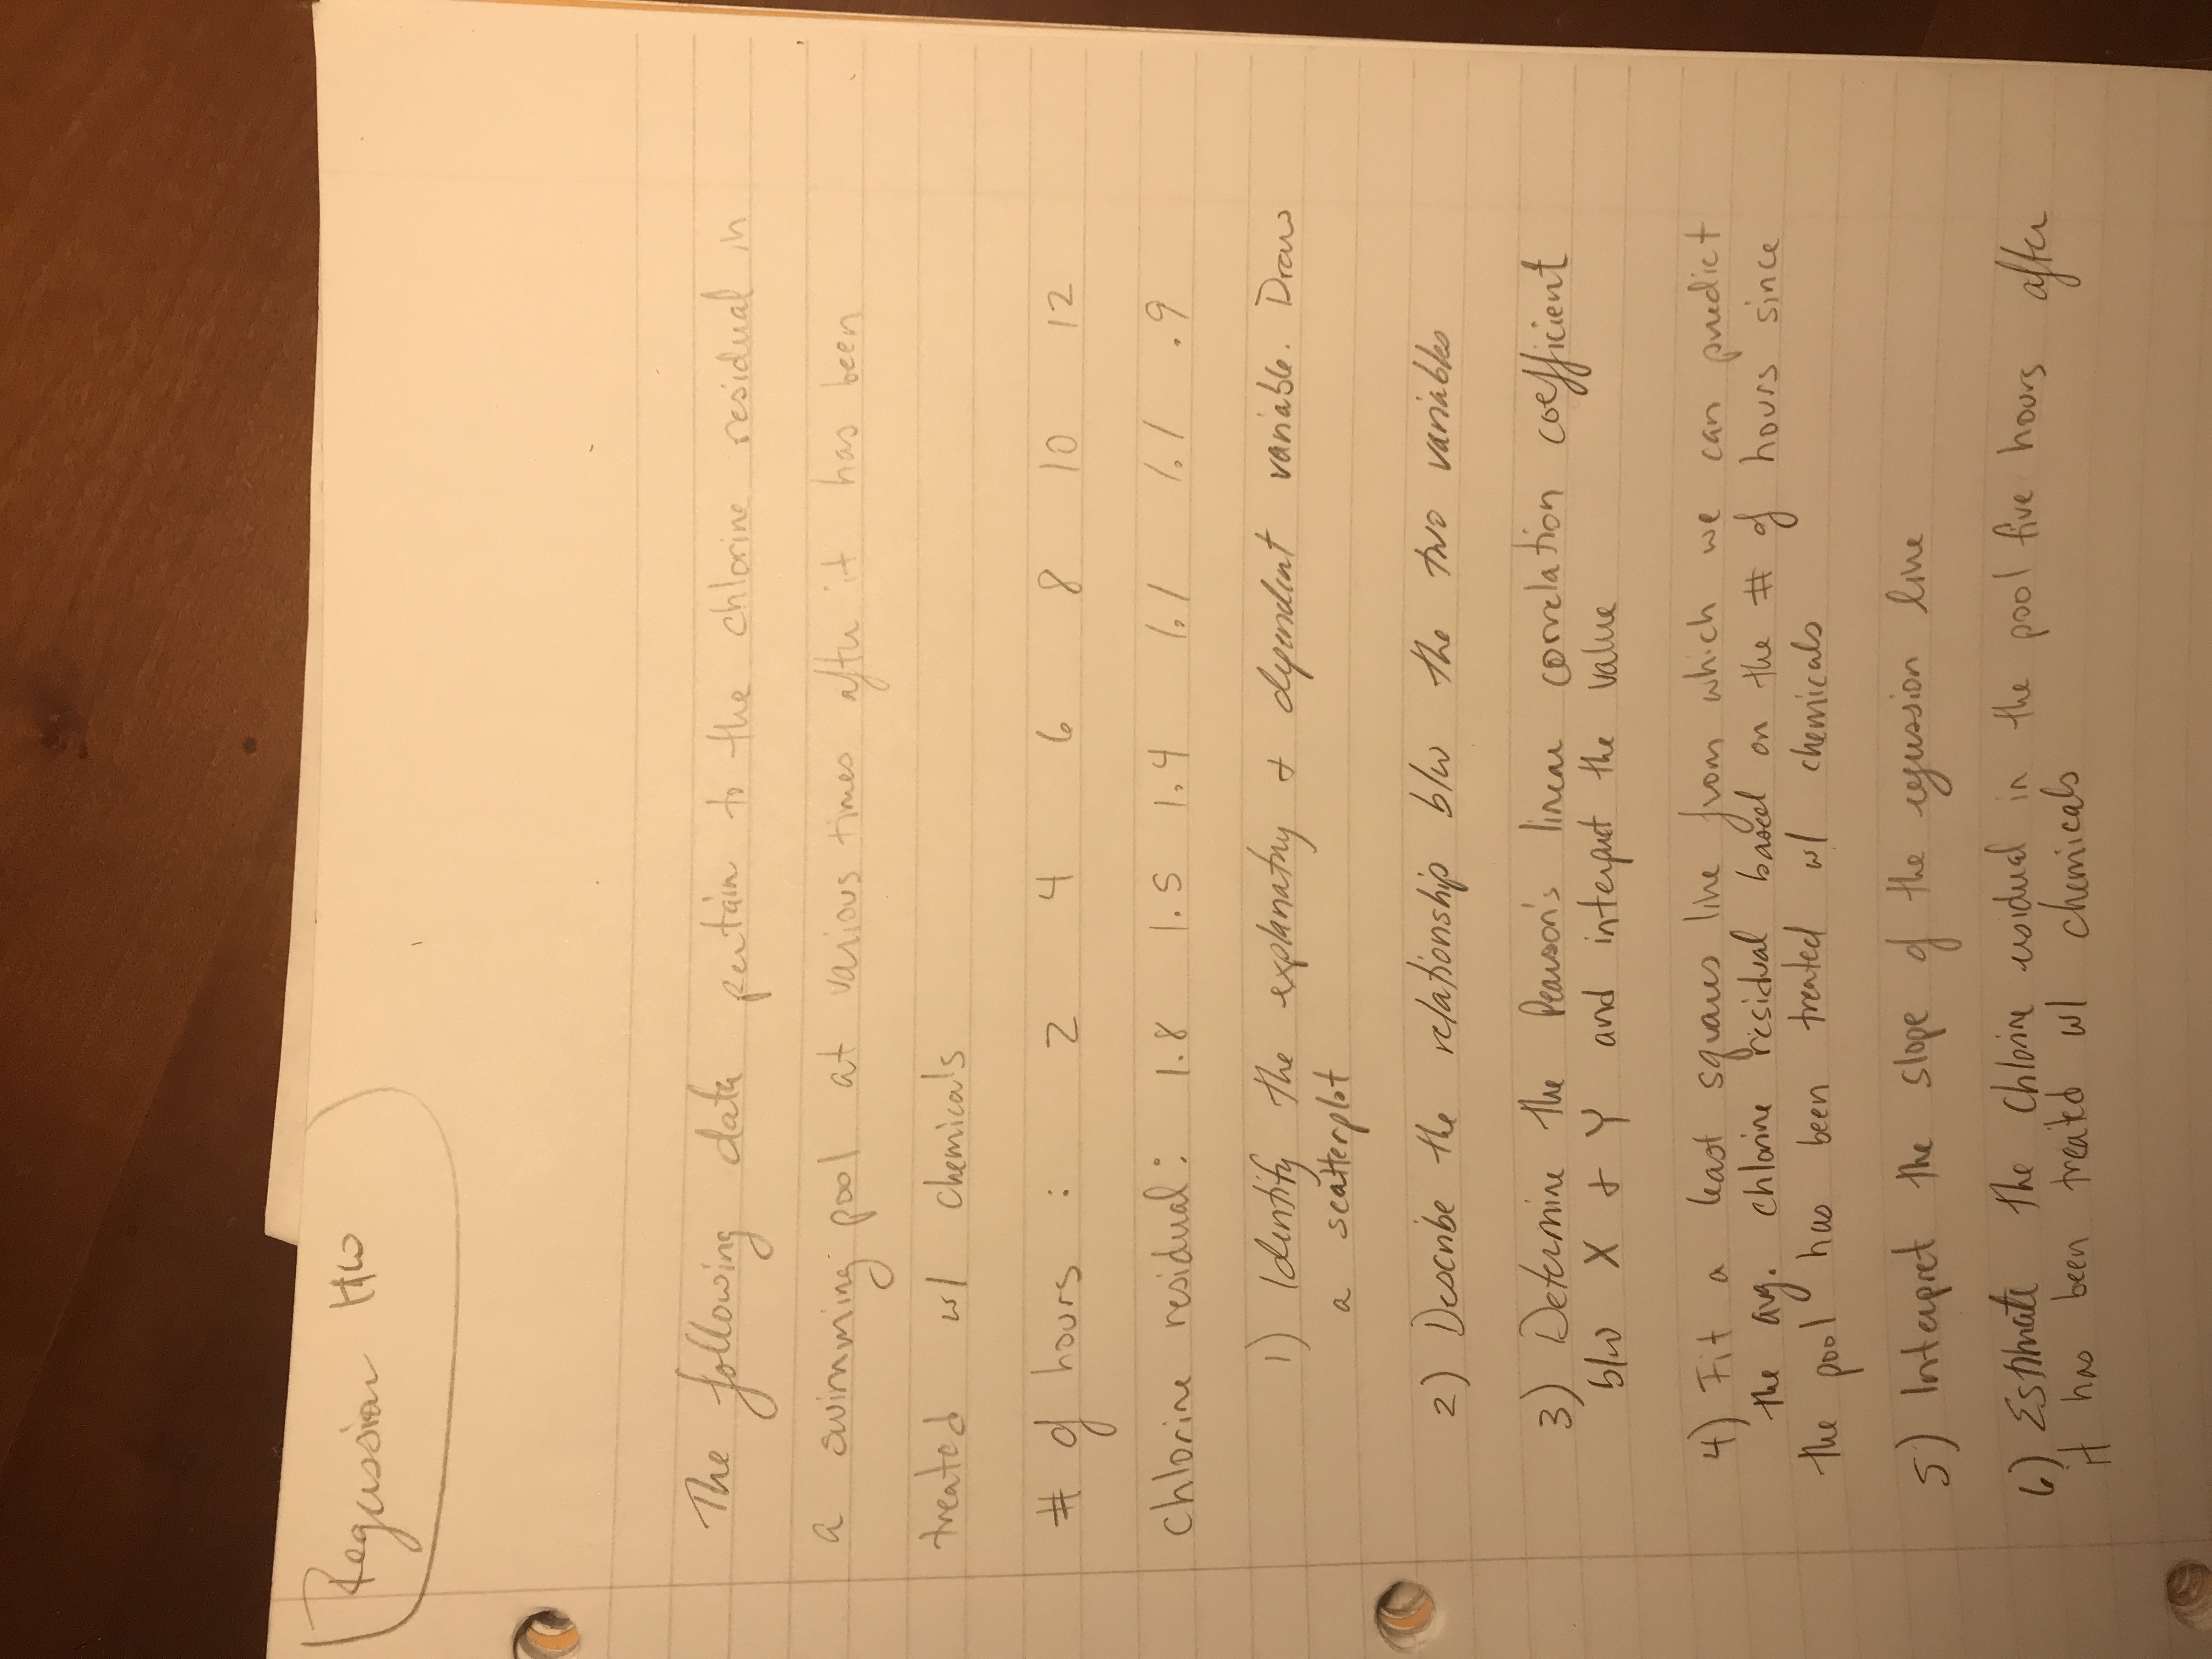 Regression HW
The following data pertain to the chlorine residual in
a swimming pool at various times after it has been
treated w/ chemicals
# of hours : 2 4 6 8 10 12
Chlorine residual: 1.8 1.5 1.4 1.1 1.1 .9
1) Identify the explanatory + dependent variable. Draw
a scatterplot
2) Describe the relationship b/w the two variables
3) Determine the Pearson's linear correlation coefficient
b/w X + Y and interpret the value
4) Fit a least squares line from which we can predict
the avg. chlorine residual based on the # of hours since
the pool has been treated w/ chemicals
5) Interpret the slope of the regression line
6) Estimate the chlorine residual in the pool five hours after
it has been treated w/ chemicals